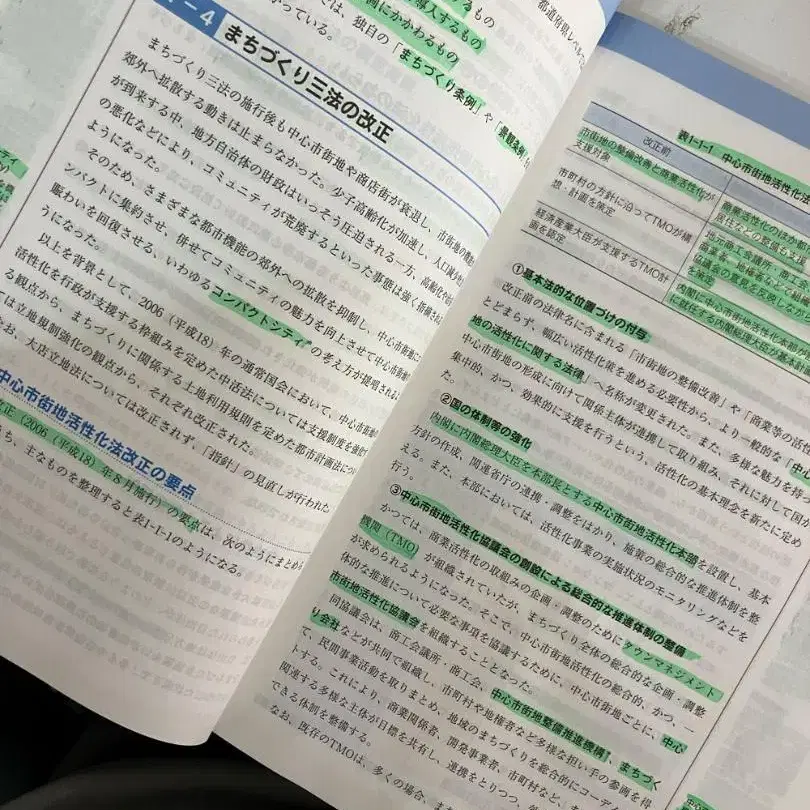 導入するもの
画にかかわるもの
都道府県レベルで
では、独自の「まちづくり条例」や「景観条例」
がっている。
－4 まちづくり三法の改正
まちづくり三法の施行後も中心市街地や商店街が衰退し、市街地の
郊外へ拡散する動きは止まらなかった。少子高齢化が加速し、人口減少
が到来する中、地方自治体の財政はいっそう圧迫される一方、高齢化や
の悪化などにより、コミュニティが荒廃するといった事態は強く指摘される
ようになった。
そのため、さまざまな都市機能の郊外への拡散を抑制し、中心市街地に
ンパクトに集約させ、併せてコミュニティの魅力を向上させて中心市街
賑わいを回復させる、いわゆるコンパクトシティの考え方が提唱される
うになった。
以上を背景として、2006（平成18）年の通常国会において、中心市街地
活性化を行政が支援する枠組みを定めた中活法については支援制度を
る観点から、まちづくりに関係する土地利用規則を定めた都市計画法につ
ては立地規制強化の観点から、それぞれ改正された。
お、大店立地法については改正されず、「指針」の見直しが行われた
中心市街地活性化法改正の要点
正（2006（平成18）年8月施行）の要点は、次のようにまとめ
ち、主なものを整理すると表1-1-1のようになる。
表1-1-1 中心市街地活性化法
改正前
市街地の整備改善と商業活性化が
支援対象
商業活性化のほか
居住などの整備も支援
市町村の方針に沿ってTMOが構
想・計画を策定
地元商工会議所・商工
商業者、地権者などで組織
協議会の意見を反映した
を策定
経済産業大臣が支援するTMO計
画を認定
内閣に中心市街地活性化本部
に就任する内閣総理大臣が基本
①基本法的な位置づけの付与
改正前の法律名に含まれる「市街地の整備改善」や「商業等の活性
とどまらず、幅広い活性化策を進める必要性から、より一般的な「中心
地の活性化に関する法律」へ名称が変更された。また、多様な魅力を持
中心市街地の形成に向けて関係主体が連携して取り組み、それに対して国が
集中的、かつ、効果的に支援を行うという、活性化の基本理念を新たに定め
た。
②国の体制等の強化
内閣に内閣総理大臣を本部長とする中心市街地活性化本部を設置し、基本
方針の作成、関連省庁の連携・調整をはかり、施策の総合的な推進体制を整
える。また、本部においては、活性化事業の実施状況のモニタリングなどを
行う。
③中心市街地活性化協議会の創設による総合的な推進体制の整備
かつては、商業活性化の取組みの企画・調整のためにタウンマネジメント
機関（TMO）が組織されていたが、まちづくり全体の総合的な企画・調整
が求められるようになった。そこで、中心市街地活性化の総合的、かつ、一
体的な推進について必要な事項を協議するために、中心市街地ごとに、中心
市街地活性化協議会を組織することとなった。
同協議会は、商工会議所・商工会、中心市街地整備推進機構、まちづく
り会社などが共同で組織し、市町村や地権者など多様な担い手の参画を得
て、民間事業活動を取りまとめ、地域のまちづくりを総合的にコーデ
トする。これにより、商業関係者、開発事業者、市町村など、ま
関連する多様な主体が目標を共有し、連携をとりつつ、
できる体制を整備する。
なお、既存のTMOは、多くの場合、ま